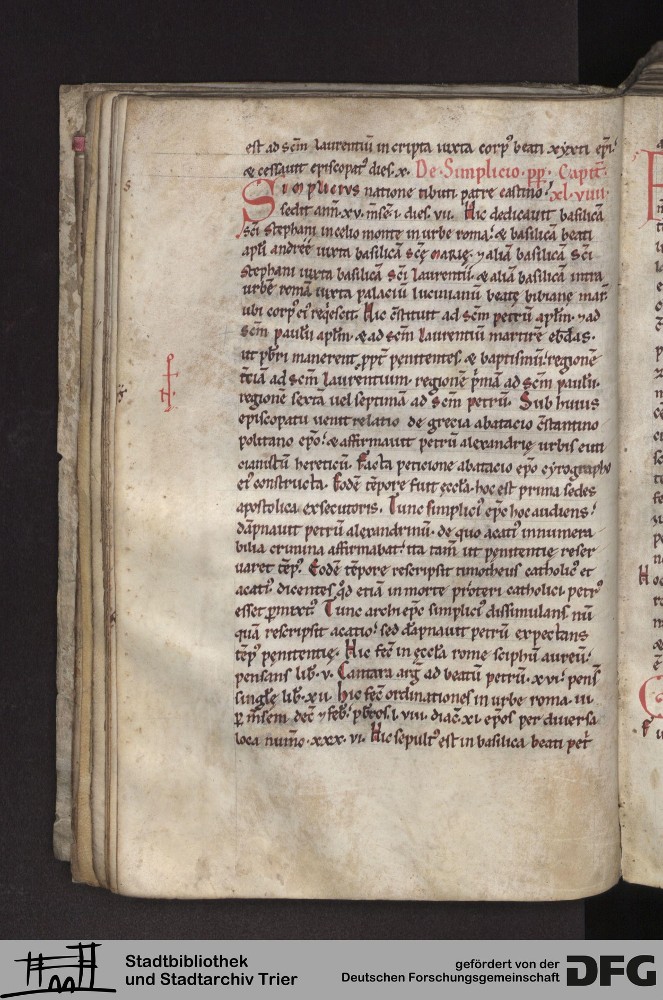 est ad scm̄ laurentiū in cripta iuxta corp᷒ beati xyxti epi.
& cessauit episcopat᷒ dies. x. De Simplicio. pp. Capit̄.
Simplicius natione tiburti patre castino. xl. viiii.
sedit ann̄. xv. m̄se. i. dies. vii. Hic dedicauit basilicā
sc̄i stephani in celio monte in urbe roma. & basilicā beati
apl̄i andreę iuxta basilicā sc̄ę marię. ⁊ aliā basilicā sc̄i
stephani iuxta basilicā sc̄i laurentii. & aliā basilicā intra
urbē romā iuxta palaciū lucinianū beatę bibianę mar̄
ubi corp᷒ ei᷒ reqescit. Hic c̄stituit ad scm̄ petrū aplm̄. ⁊ ad
scm̄ paulū aplm̄. & ad scm̄ laurentiū martirē ebdās.
ut pb̄ri manerent ppt̄ penitentes. & baptismū. regionē
t̄ciā ad scm̄ laurentium. regionē p̄mā ad scm̄ paulū.
regionē sextā uel septimā ad scm̄ petrū. Sub huius
episcopatu uenit relatio de grecia ab acatio c̄stantino
politano ep̄o. & affirmauit petrū alexandrię urbis euti
cianistū hereticū. Facta peticione ab acacio ep̄o cyrographo
ei᷒ constructa. Eodē tēpore fuit eccl̄a. hoc est prima sedes
apostolica exsecutoris. Tunc simplici᷒ ep̄c hoc audiens.
dāpnauit petrū alexandrinū. de quo acati᷒ innumera
bilia crimina affirmabat. ita tam̄ ut penitentie reser
uaret tēp᷒. Eodē tēpore rescripsit timotheus catholic᷒ et
acati᷒. dicentes qd̄ etiā in morte p̄teri catholici petr᷒
esset p̄mixt᷒. Tunc archiep̄c simplici᷒ dissimulans nū
quā rescripsit acatio. sed dāpnauit petrū expectans
tēp᷒ penitentię. Hic fec̄ in eccl̄a rome sciphū aureū.
pensans lib̄. v. Cantara arḡ ad beatū petrū. xvi. pens̄
singlę lib̄. xii. hic fec̄ ordinationes in urbe roma. iii
p̄ m̄sem dec̄ ⁊ feb̄. pb̄ros. l. viii. diac̄. xi. ep̄os per diuersa
loca num̄o. xxx. vi. Hic sepult᷒ est in basilica beati pet̄
Stadtbibliothek
und Stadtarchiv Trier
gefördert von der
Deutschen Forschungsgemeinschaft
DFG